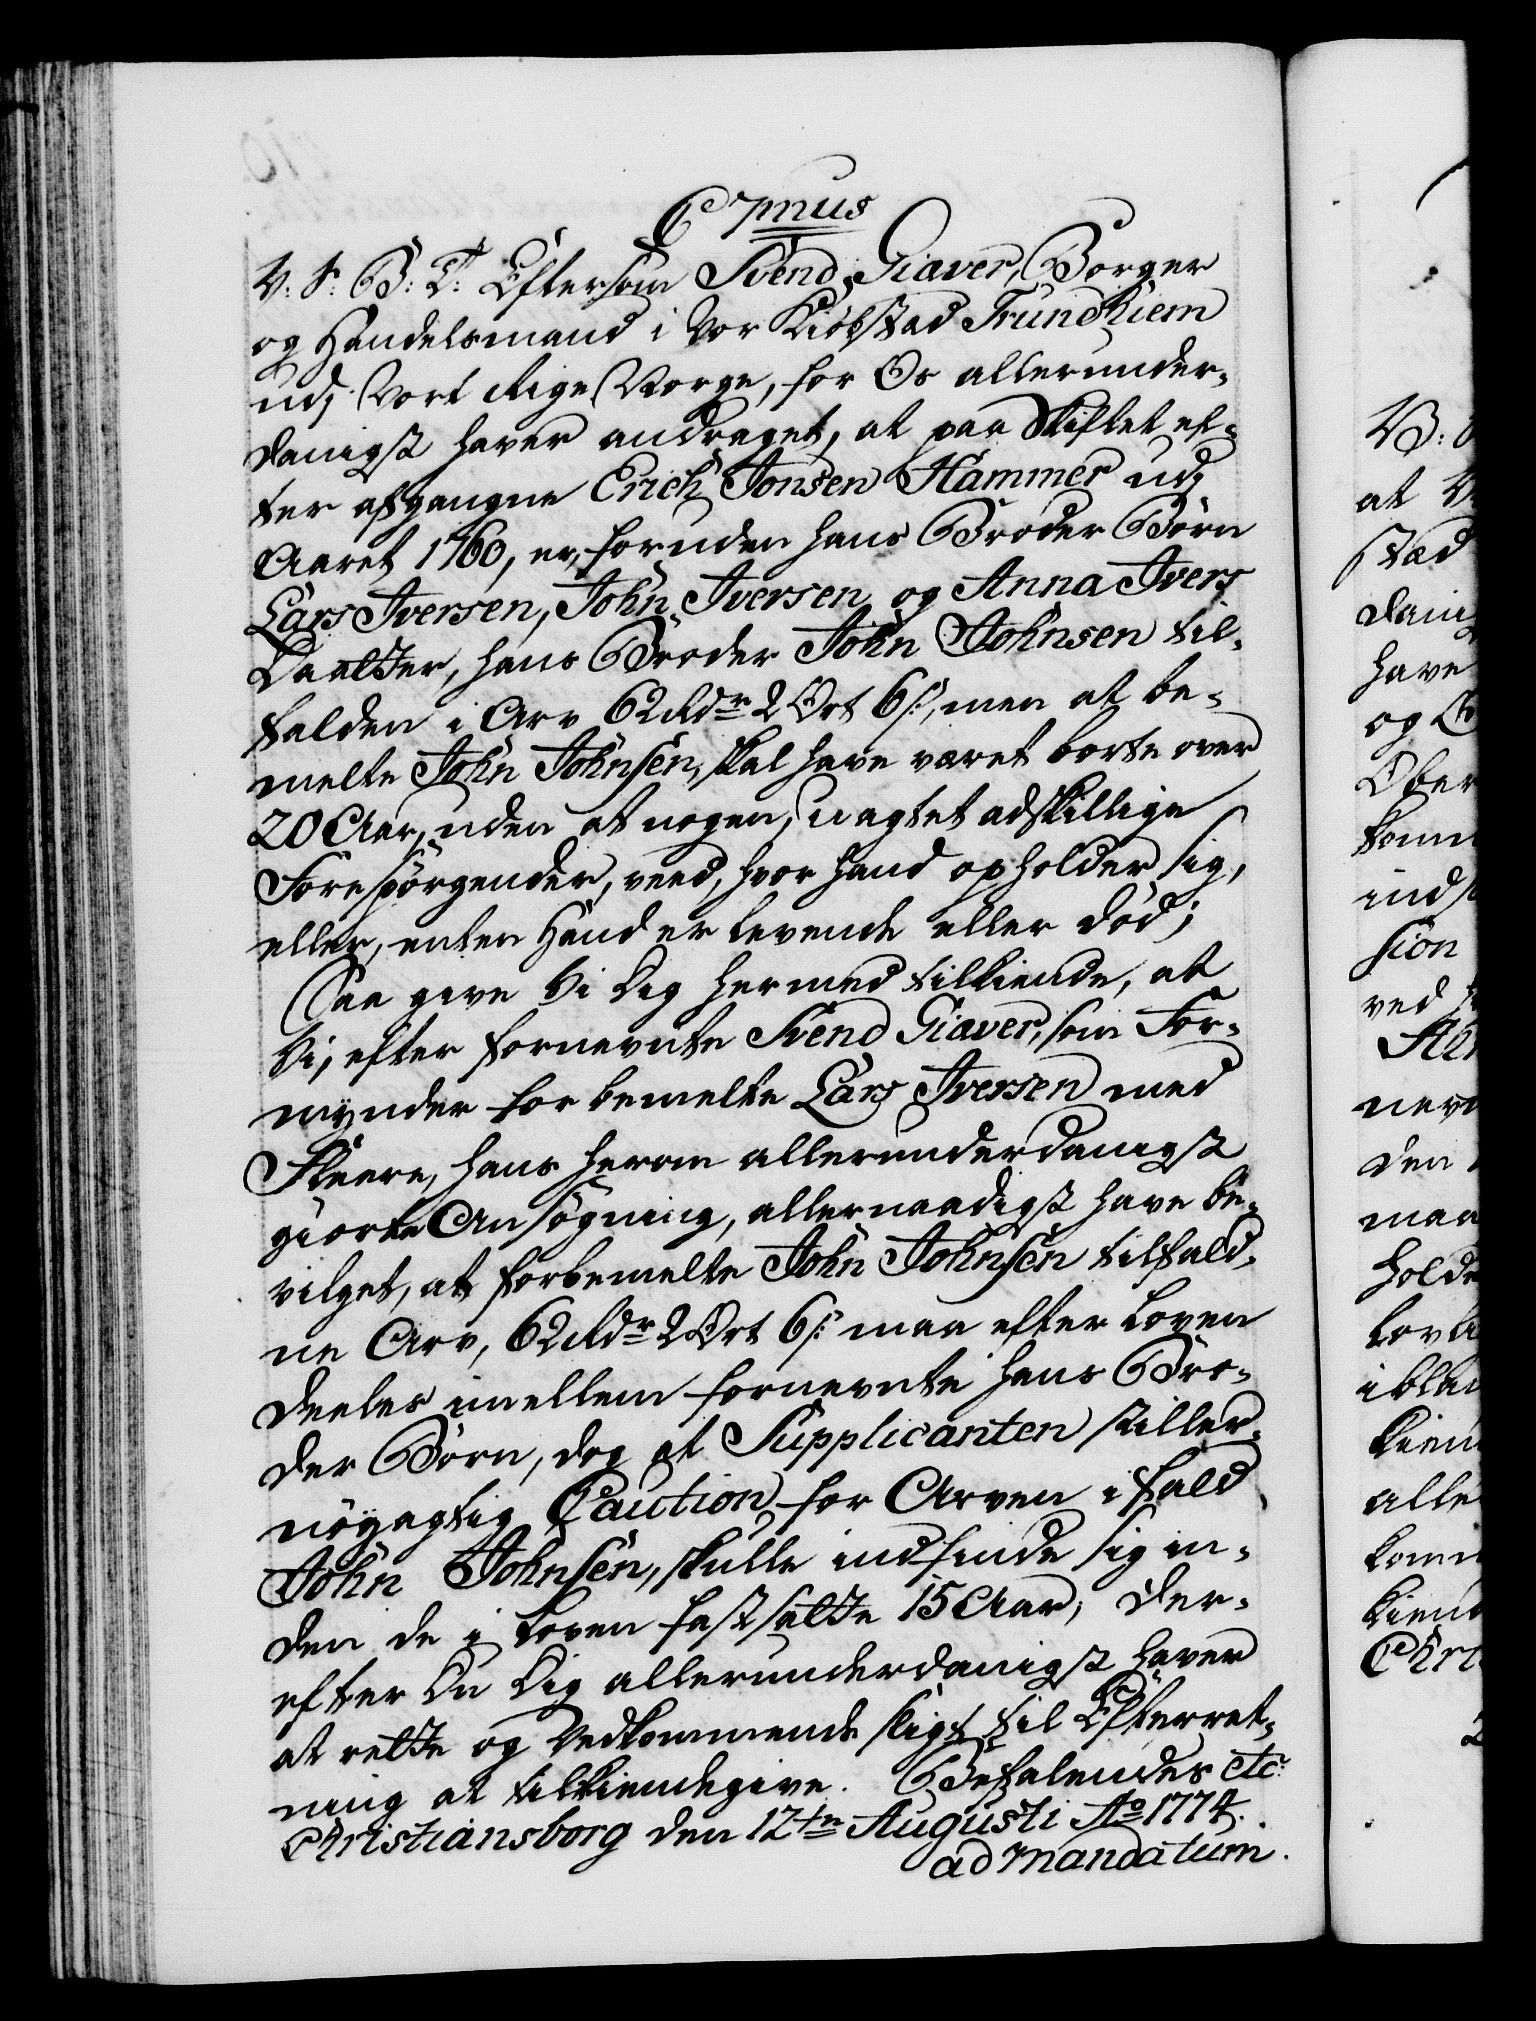 C 7mus
V: S: G: T: Eftersom Svend Giæver, Borger
og Handelsmand i Vor Kiøbstad Trundhiem
udj Vort Rige Norge, for Os allerunder-
danigst haver andraget, at paa Skiftet ef-
ter afgangne Erich Jonsen Hammer udj
Aaret 1760, er, foruden hans Broder Børn
Lars Iversen, John Iversen og Anna Ivers
Daatter, hans Broder John Johnsen til-
falden i Arv 62 Rdr 2 Ort 6 s:, men at be-
melte John Johnsen, skal have været borte over
20 Aar, uden at nogen, uagtet adskillige
Forespørgender, veed, hvor hand opholder sig,
eller, enten Hand er levende eller død;
Saa give Vi Dig hermed tilkiende, at
Vi, efter fornevnte Svend Giæver, som For-
mynder for bemelte Lars Iversen med
Fleere, hans herom allerunderdanigst
giorte Ansøgning, allernaadigst have be-
vilget, at forbemelte John Johnsen tilfald-
ne Arv, 62 Rdr 2 Ort 6 s: maa efter Loven
deeles imellem fornevnte hans Bro-
der Børn, dog at Supplicanten stiller
nøyagtig Caution for Arven ifald
John Johnsen, skulle indfinde sig in-
den de i Loven fastsatte 15 Aar; Der-
efter Du Dig allerunderdanigst haver
at rette og Vedkommende sligt til Efterret-
ning at tilkiendegive. Befalendes etc:
Christiansborg den 12tn Augusti Ao 1774.
ad mandatum.